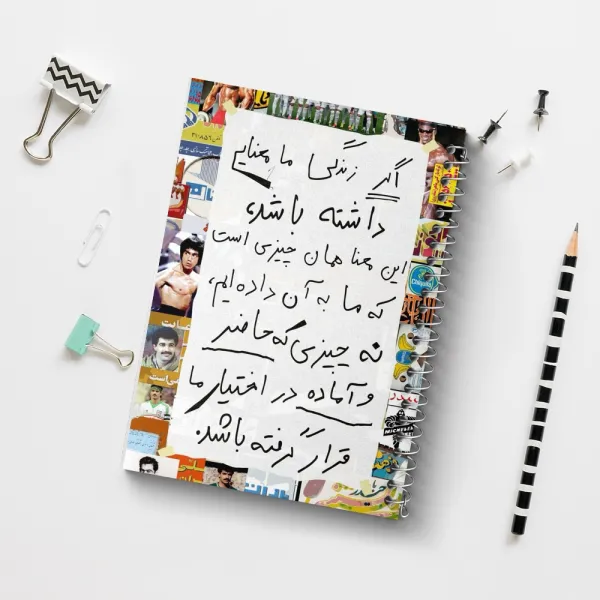 اگر زندگی ما معنایی
داشته باشد،
این معنا همان چیزی است
که ما به آن داده‌ایم،
نه چیزی که حاضر
و آماده در اختیار ما
قرار گرفته باشد.
Chiquita
MICHELIN